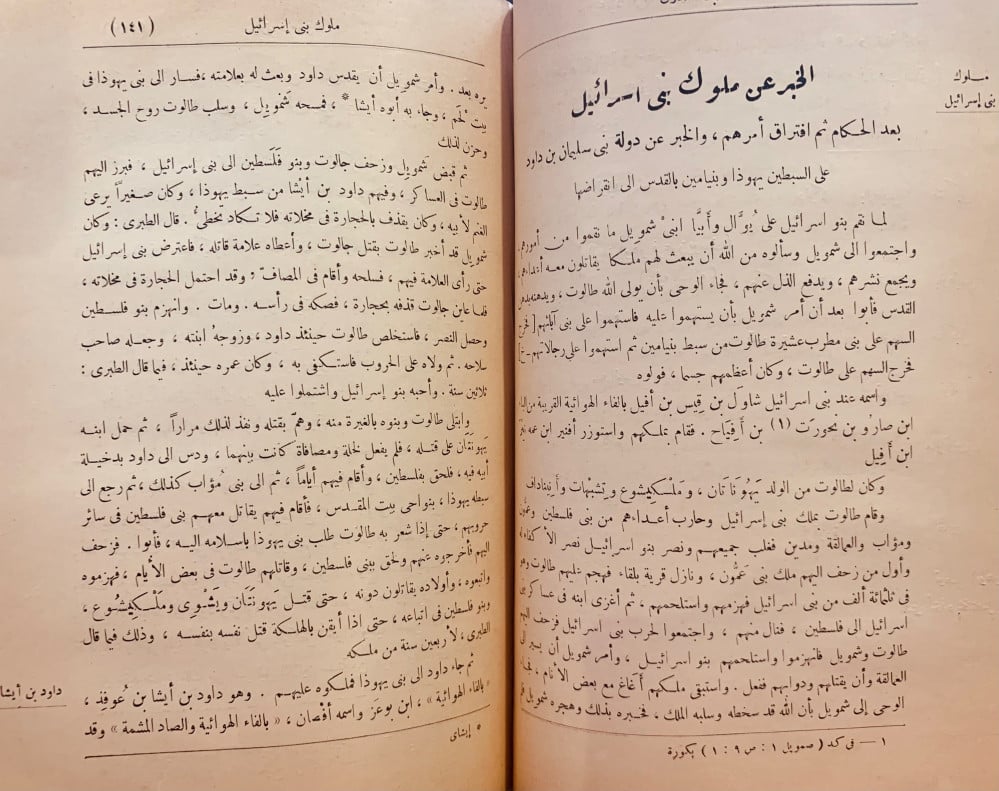 ملوك
بنى إسرائيل
الخبر عن ملوك بنى اسرائيل
بعد الحكام ثم افتراق أمرهم ، والخبر عن دولة بنى سليمان بن داود
على السبطين يهوذا وبنيامين بالقدس الى انقراضها
لما نقم بنو اسرائيل على يُوآل وأَبِيَّا ابنىْ شمويل ما نقموا من أمورهم
واجتمعوا الى شمويل وسألوه من الله أن يبعث لهم ملكا يقاتلون معه أعداءهم
ويجمع نشرهم ، ويدفع الذل عنهم ، فجاء الوحى بأن يولى الله طالوت ، ويدهنه بدهن
القدس فأبوا بعد أن أمر شمويل بأن يستهموا عليه فاستهموا على بنى آبائهم
السهم على بنى مطرب عشيرة طالوت من سبط بنيامين ثم استهموا على رجالاتهم
فخرج السهم على طالوت ، وكان أعظمهم جسما ، فولوه
واسمه عند بنى اسرائيل شاول بن قيس بن أفيل بالفاء الهوائية القريبة من الباء
ابن صارُو بن نحورت (١) بن أَفِيَاح . فقام بملكهم واستوزر أفنير ابن عمه
ابن أَفِيل
وكان لطالوت من الولد يَهُونَاتَان ، وَمَلْكِيشوع وتشبهات
وقام طالوت بملك بنى إسرائيل وحارب أعداءهم من بنى فلسطين وعمون
ومؤاب والعمالقة ومدين فغلب جميعهم ونصر بنو اسرائيل نصر الأكفاء له
وأول من زحف اليهم ملك بنى عَمُّون ، ونازل قرية بلقاء فهجم عليهم طالوت وهو
فى ثلثمائة ألف من بنى اسرائيل فهزمهم واستلحمهم ، ثم أغزى ابنه فى عساكر بنى
اسرائيل الى فلسطين ، فنال منهم ، واجتمعوا لحرب بنى اسرائيل فزحف اليهم
طالوت وشمويل فانهزموا واستلحمهم بنو اسرائيل ، وأمر شمويل أن يسير الى
العمالقة وأن يقتلهم ودوابهم ففعل . واستبقى ملكهم أغاغ مع بعض الأنعام ، فجاء
الوحى إلى شمويل بأن الله قد سخطه وسلبه الملك ، فخبره بذلك وهجره شمويل فلم
١ — فى كد ( صمويل ١ : ص ٩ : ١ ) بكورة
ملوك بنى إسرائيل
( ١٤١ )
يره بعد . وأمر شمويل أن يقدس داود وبعث له بعلامته ، فسار الى بنى يهوذا فى
بيت لحَم ، وجاء به أبوه أيشا * ، فمسحه شَمْوِيل ، وسلب طالوت روح الجسد ،
وحزن لذلك
ثم قبض شمويل وزحف جالوت وبنو فَلَسطين الى بنى إسرائيل ، فبرز اليهم
طالوت فى العساكر ، وفيهم داود بن أَيْشا من سبط يهوذا ، وكان صغيراً يرعى
الغنم لأبيه ، وكان يقذف بالحجارة فى مخلاته فلا تكاد تخطئُ . قال الطبرى : وكان
شمويل قد أخبر طالوت بقتل جالوت ، وأعطاه علامة قاتله ، فاعترض بنى إسرائيل
حتى رأى العلامة فيهم ، فسلحه وأقام فى المصاف ؛ وقد احتمل الحجارة فى مخلاته ،
فلما عاين جالوت قذفه بحجارة ، فصكه فى رأسه . ومات . وانهزم بنو فلسطين
وحصل النصر ، فاستخلص طالوت حينئذ داود ، وزوجه ابنته ، وجعله صاحب
سلاحه . ثم ولاه على الحروب فاستكفى به ، وكان عمره حينئذ ، فيما قال الطبرى :
ثلاثين سنة . وأحبه بنو إسرائيل واشتملوا عليه
وابتلى طالوت وبنوه بالغيرة منه ، وهمّ بقتله ونفذ لذلك مراراً ، ثم حمل ابنه
يَهونتَان على قتله ، فلم يفعل لخلة ومصافاة كانت بينهما ، ودس الى داود بدخيلة
أبيه فيه ، فلحق بفلسطين ، وأقام فيهم أياماً ، ثم الى بنى مُؤاب كذلك ، ثم رجع الى
سبطه يهوذا ، بنواحى بيت المقدس ، فأقام فيهم يقاتل معهم بنى فلسطين فى سائر
حروبهم ، حتى إذا شعر به طالوت طلب بنى يهوذا باسلامه اليه ، فأبوا . فزحف
اليهم فأخرجوه عنهم ولحق ببنى فلسطين ، وقاتلهم طالوت فى بعض الأيام ، فهزموه
واتبعوه ، وأولاده يقاتلون دونه ، حتى قتل يَهونتَان ويَشْوِى ومَلْكِيشُوع ،
وبنو فلسطين فى اتباعه ، حتى اذا أيقن بالهلكة قتل نفسه بنفسه ، وذلك فيما قال
الطبرى ، لأربعين سنة من ملكه
ثم جاء داود الى بنى يهوذا فملكوه عليهم . وهو داود بن أيشا بن عُوفِذ ،
« بالفاء الهوائية » ، ابن بوعَز واسمه أفْصان ، « بالفاء الهوائية والصاد المشمة » وقد
داود بن أيشا
* إيشاى